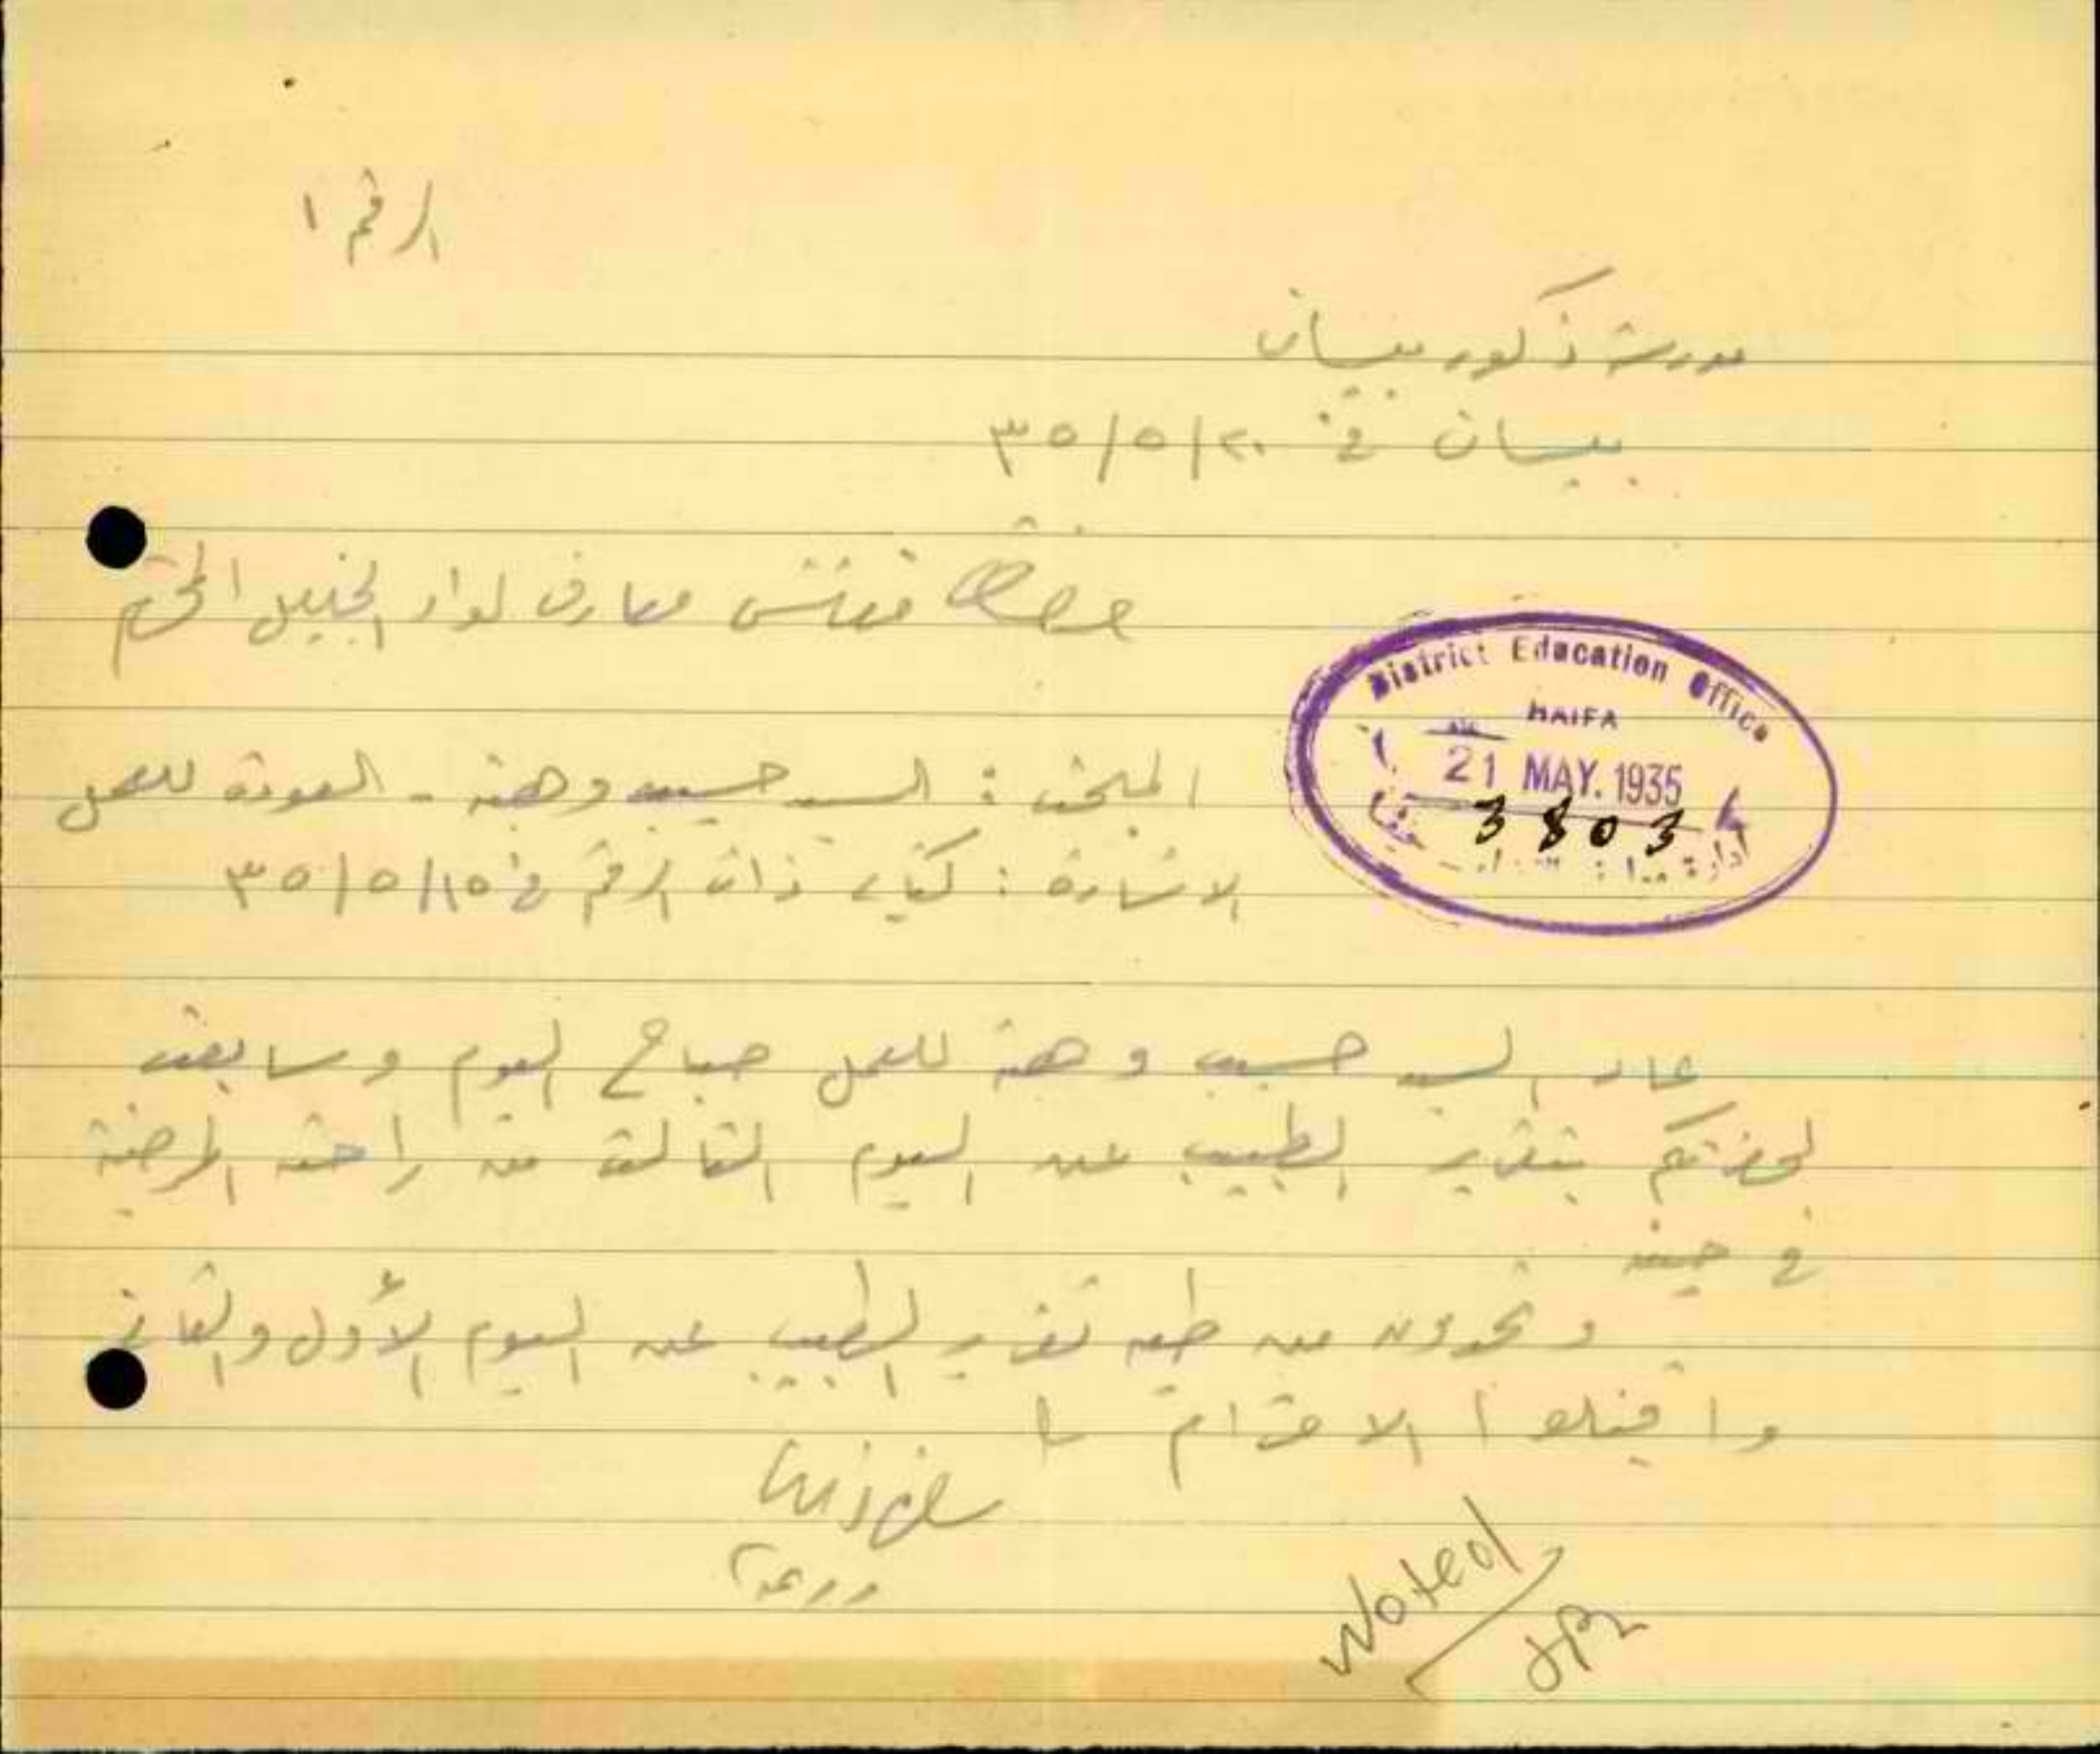 الرقم ١
مدرسة ذكور بيسان
بيسان في ٢٠/٥/٣٥
حضرة مفتش معارف لواء الجليل المحترم
District Education Office
HAIFA
21 MAY. 1935
3803
المبحث : السيد حسيب وهبه - العودة للعمل
الاشارة : كتابي ذات الرقم في ١٥/٥/٣٥
عاد السيد حسيب وهبه للعمل صباح اليوم وسابعث
لحضرتكم بتقرير الطبيب عن اليوم الثالث من راحته المرضية
في حينه
وتجدون من طيه تقرير الطبيب عن اليوم الأول والثاني
واقبلوا الاحترام
Noted